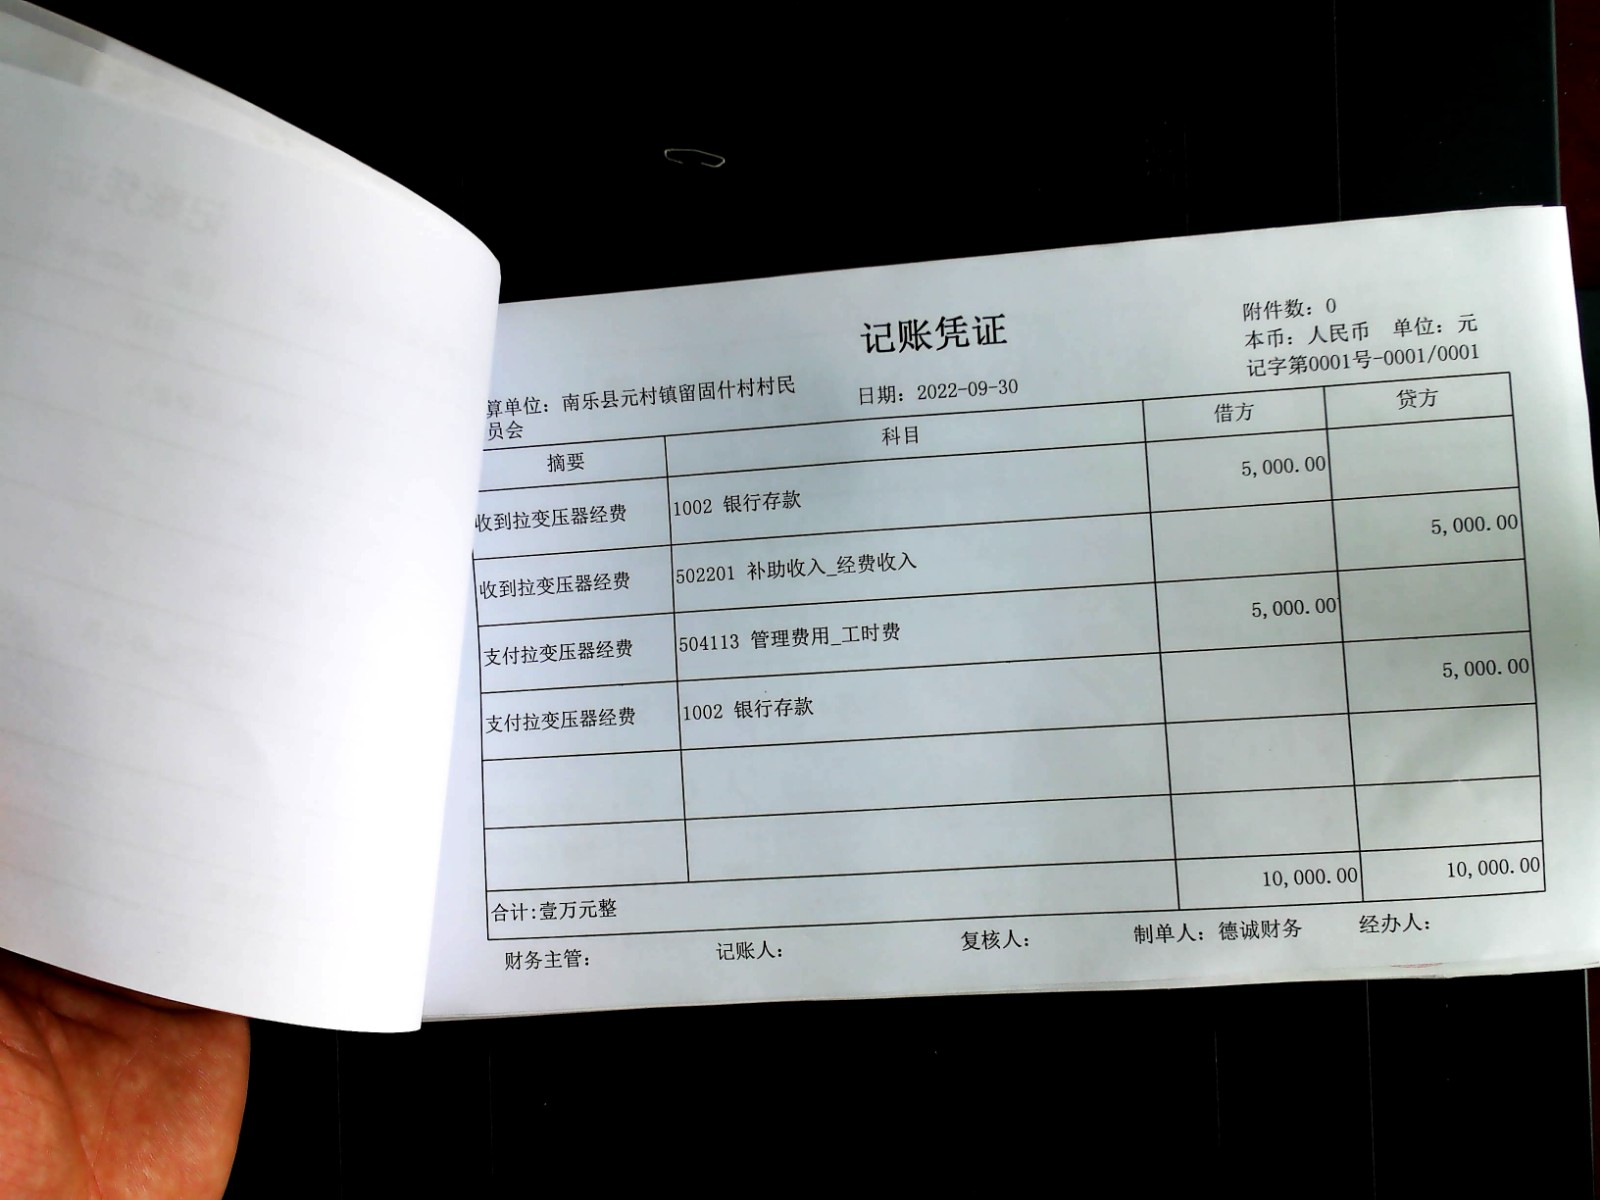 记账凭证
附件数：0
本币：人民币 单位：元
记字第0001号-0001/0001
算单位：南乐县元村镇留固什村村民
员会
日期：2022-09-30
摘要 科目 借方 贷方
收到拉变压器经费 1002 银行存款 5,000.00
收到拉变压器经费 502201 补助收入_经费收入 5,000.00
支付拉变压器经费 504113 管理费用_工时费 5,000.00
支付拉变压器经费 1002 银行存款 5,000.00
合计:壹万元整 10,000.00 10,000.00
财务主管： 记账人： 复核人： 制单人：德诚财务 经办人：